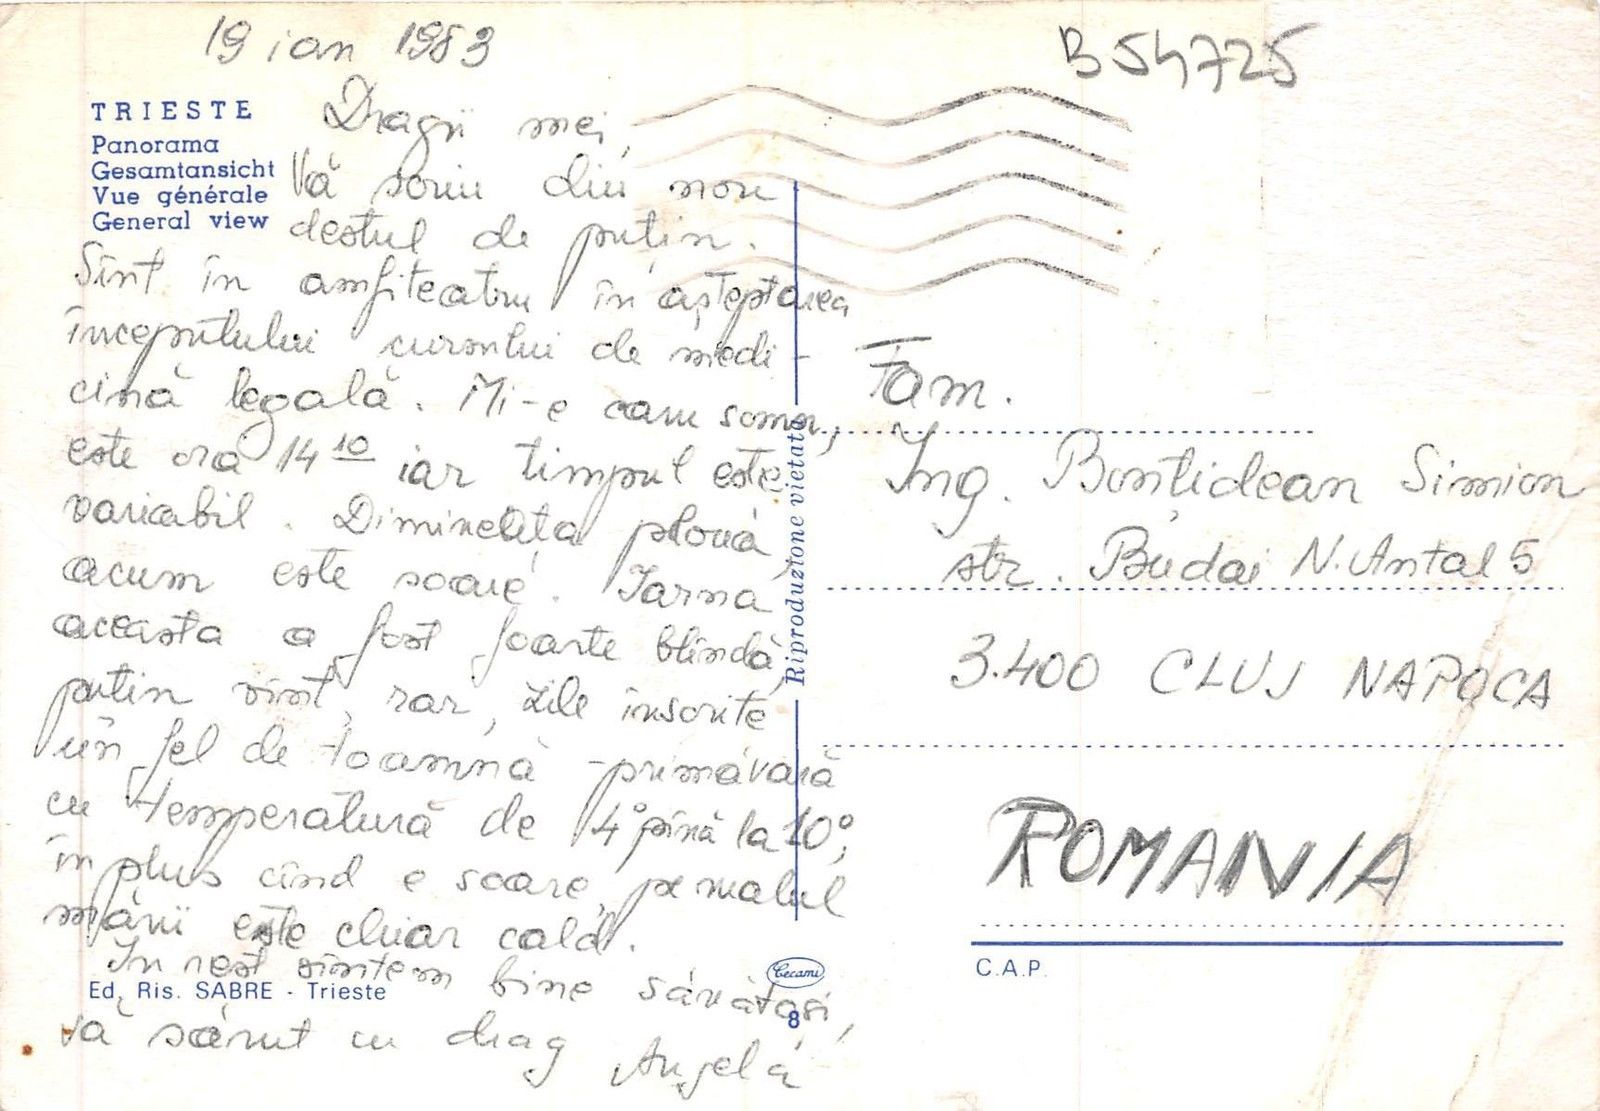 19 ian 1983
B 54725
TRIESTE
Panorama
Gesamtansicht
Vue générale
General view
Dragii mei,
Vă scriu din nou
destul de puțin.
Sînt în amfiteatru în așteptarea
începutului cursului de medi-
cină legală. Mi-e cam somn,
este ora 14 10 iar timpul este
variabil. Dimineața plouă,
acum este soare. Iarna
aceasta a fost foarte blîndă,
puțin vînt, rar, zile însorite
un fel de toamnă - primăvară
cu temperatură de 4° pînă la 10°,
în plus cînd e soare, pe malul
mării este chiar cald.
În rest sîntem bine sănătoși,
vă sărut cu drag Angela
Ed. Ris. SABRE - Trieste
Riproduzione vietata
Cecami
8
Fam.
Ing. Bonțidean Simion
str. Budai N. Antal 5
3.400 CLUJ NAPOCA
ROMANIA
C.A.P.